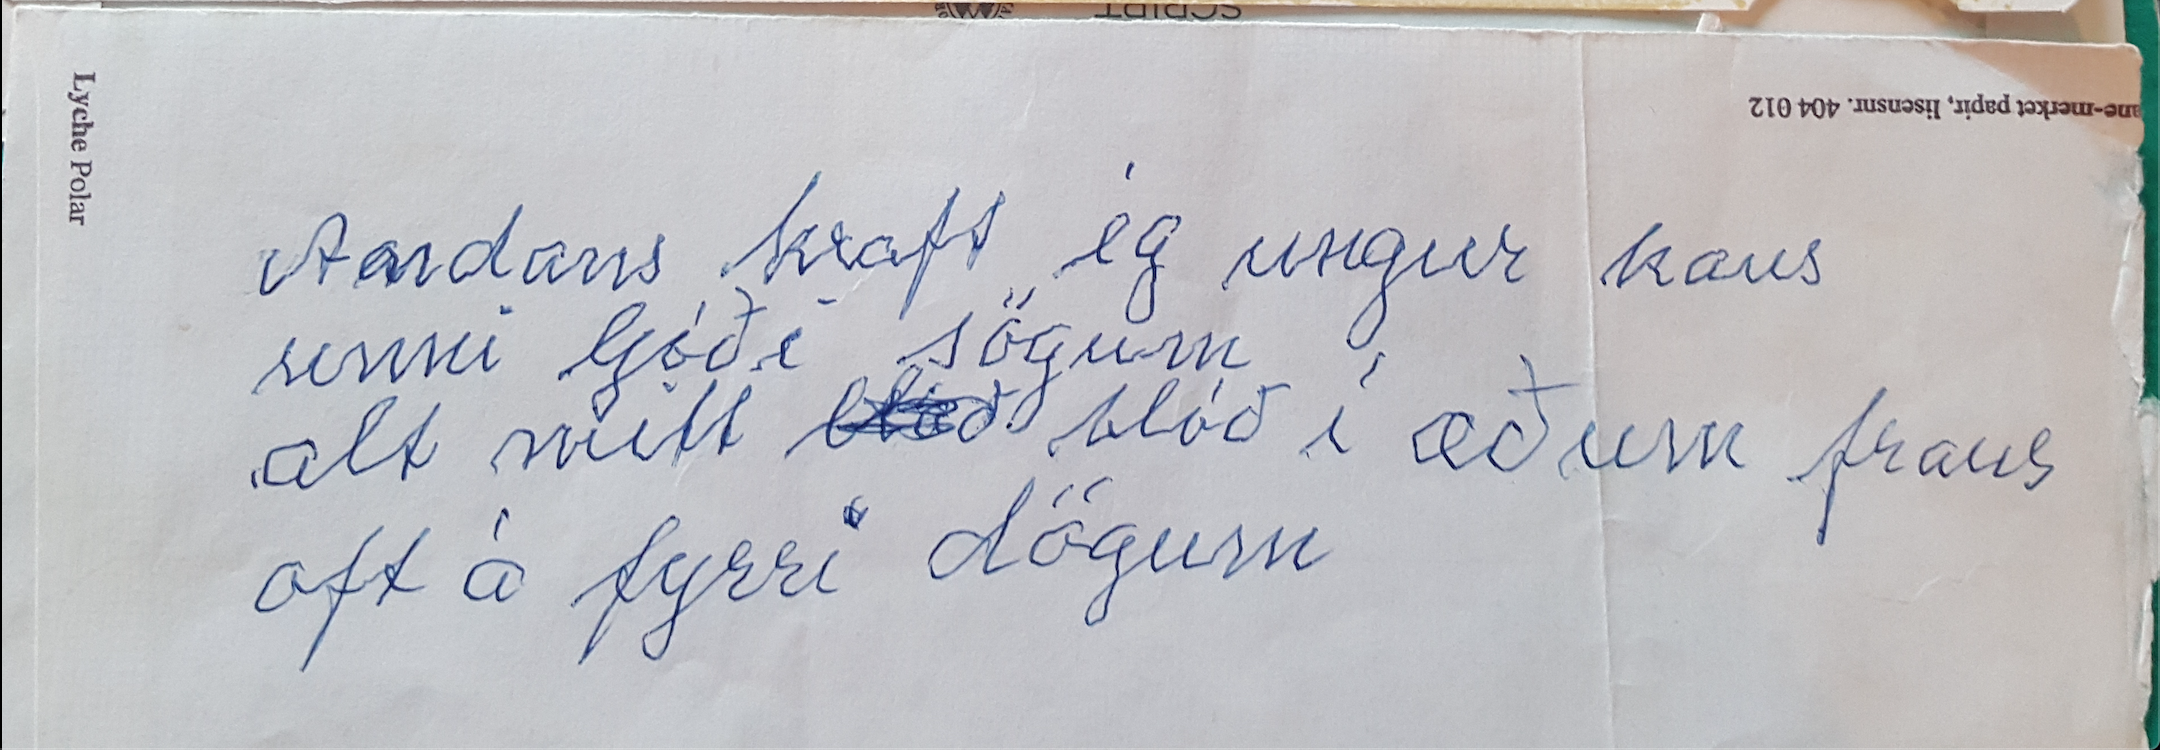 SCRIPT
Lyche Polar
ane-merket papir, lisensnr. 404 012
Aandans kraft ég ungur kaus
unni ljóði sögum
alt mitt blóð í æðum fraus
oft á fyrri dögum